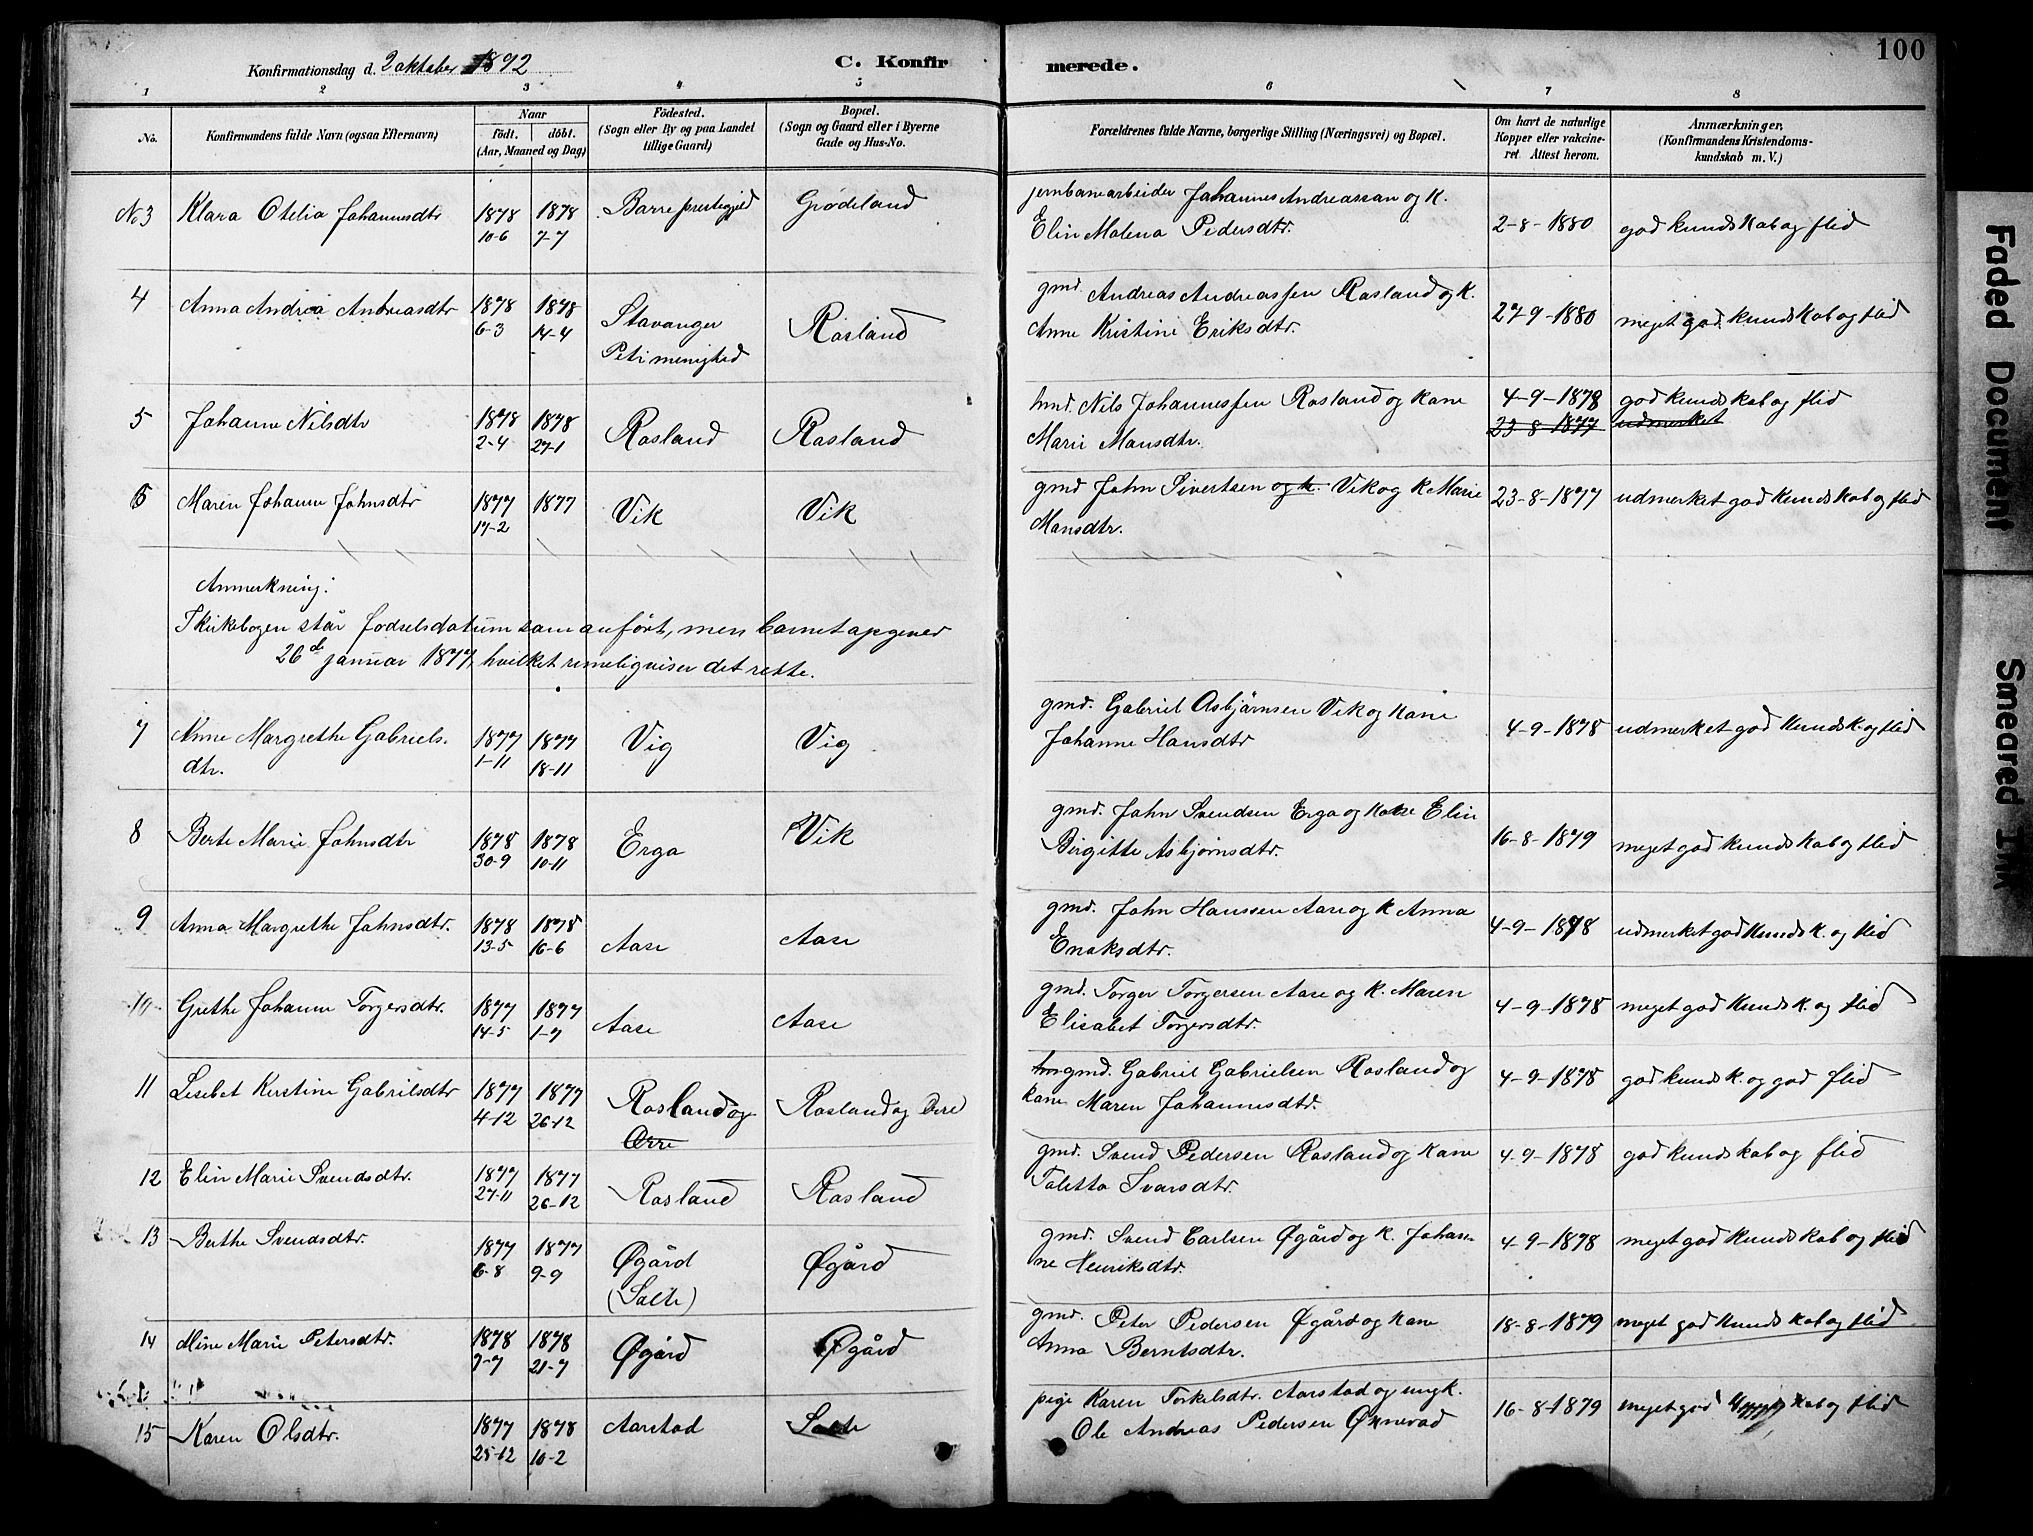 100
Konfirmationsdag d. 2 oktober 1892
C. Konfirmerede.
1 2 3 4 5 6 7 8
No. Konfirmandens fulde Navn (ogsaa Efternavn) Naar født. døbt. (Aar, Maaned og Dag) Fødested. (Sogn eller By og paa Landet tillige Gaard) Bopæl. (Sogn og Gaard eller i Byerne Gade og Hus-No. Forældrenes fulde Navne, borgerlige Stilling (Næringsvei) og Bopæl. Om havt de naturlige Kopper eller vakcineret. Attest herom. Anmærkninger, (Konfirmandens Kristendomskundskab m. V.)
No 3 Klara Otelia Johannesdtr 1878 10-6 1878 7-7 Borre prestegjeld Grødeland jernbanearbeider Johannes Andreassan og k.
Elin Malena Pedersdtr. 2-8-1880 god kundskab og flid
4 Anna Andrea Andreasdtr 1878 6-3 1878 14-4 Stavanger Petri menighed Rosland gmd. Andreas Andreassen Rosland og k.
Anne Kristine Eriksdtr. 27-9-1880 meget god kundskab og flid
5 Johanne Nilsdtr 1878 2-4 1878 27-1 Rosland Rosland hmd. Nils Johannessen Rosland og kone
Marie Mansdtr. 4-9-1878 god kundskab og flid
23-8-1877 udmerket
6 Maren Johanne Johnsdtr 1877 17-2 1877 Vik Vik gmd John Sivertsen og k. Vik og k Marie
Mansdtr. 23-8-1877 udmerket god kundskab og flid
Anmerkning:
I kirkebogen står fødselsdatum som anført, men barnet opgiver
26de januar 1877, hvilket rimeligvis er det rette.
7 Anne Margrethe Gabriels-
dtr. 1877 1-11 1877 18-11 Vig Vig gmd. Gabriel Asbjørnsen Vik og kone
Johanne Hansdtr 4-9-1878 udmerket god kundsk. og flid
8 Berte Marie Johnsdtr 1878 30-9 1878 10-11 Erga Vik gmd. John Svendsen Erga og kone Elin
Birgitte Asbjørnsdtr. 16-8-1879 meget god kundskab og flid
9 Anna Margrethe Johnsdtr. 1878 13-5 1878 16-6 Aase Aase gmd. John Hanssen Aase og k Anna
Enoksdtr. 4-9-1878 udmerket god kundsk. og flid
10 Grethe Johanne Torgersdtr. 1877 14-5 1877 1-7 Aase Aase gmd. Torger Torgersen Aase og k. Maren
Elisabet Torgersdtr. 4-9-1878 meget god kundsk. og flid
11 Lisebet Kirstine Gabrielsdtr 1877 4-12 1877 26-12 Rosland og Orre Rosland og Orre gmd. Gabriel Gabrielsen Rosland og
kone Maren Johannesdtr. 4-9-1878 god kundsk. og god flid
12 Elin Marie Svendsdtr. 1877 27-11 1877 26-12 Rosland Rosland gmd. Svend Pedersen Rosland og kone
Toletta Ivarsdtr. 4-9-1878 god kundskab og flid
13 Berthe Svendsdtr. 1877 6-8 1877 9-9 Øgård (Salte) Øgård gmd. Svend Carlsen Øgård og k. Johan-
ne Henriksdtr. 4-9-1878 meget god kundskab og flid
14 Mine Marie Petersdtr. 1878 7-7 1878 21-7 Øgård Øgård gmd. Peter Pedersen Øgård og kone
Anna Berntsdtr. 18-8-1879 meget god kundskab og flid
15 Karen Olsdtr. 1877 25-12 1878 10-2 Aarstad Salte pige Karen Torkelsdtr. Aarstad og ungk.
Ole Andreas Pedersen Øxnevad 16-8-1879 meget god kab og flid
Faded Document
Smeared Ink